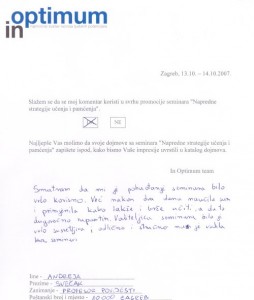 in optimum
Zagreb, 13.10. – 14.10.2007.
Slažem se da se moj komentar koristi u svrhu promocije seminara "Napredne
strategije učenja i pamćenja".
NE
Najljepše Vas molimo da svoje dojmove sa seminara "Napredne strategije učenja i
pamćenja" napišete ispod, kako bismo Vaše impresije uvrstili u katalog dojmova.
In Optimum team
Smatram da mi je pohađanje seminara bilo
vrlo korisno. Već nakon dva dana naučila sam
i primijenila kako lakše i brže učiti, a da to
dugoročno zapamtim. Voditeljica seminara bila je
vrlo, odlično i stručno nas je vodila
kroz seminar
Ime - ANDREJA
Prezime - SVEČAK
Zanimanje - PROFESOR POVIJESTI
Poštanski broj i mjesto - 10000 ZAGREB